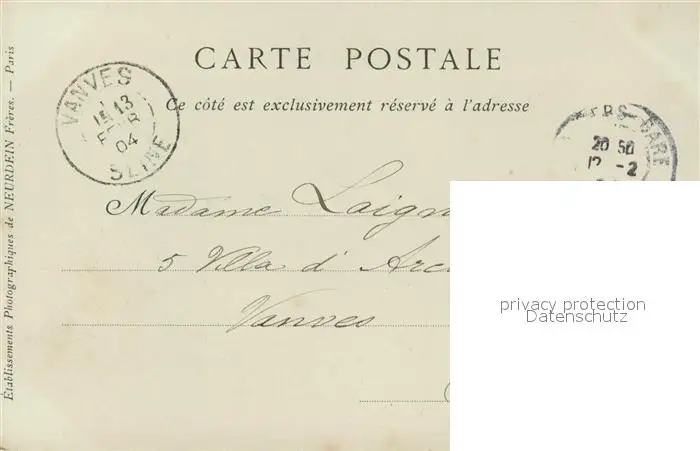 CARTE POSTALE
Ce côté est exclusivement réservé à l'adresse
VANVES
13
FEVR
04
SEINE
GARE
20 50
12 -2
Madame
5 Villa d'
Vanves
Établissements Photographiques de NEURDEIN Frères. — Paris
privacy protection
Datenschutz